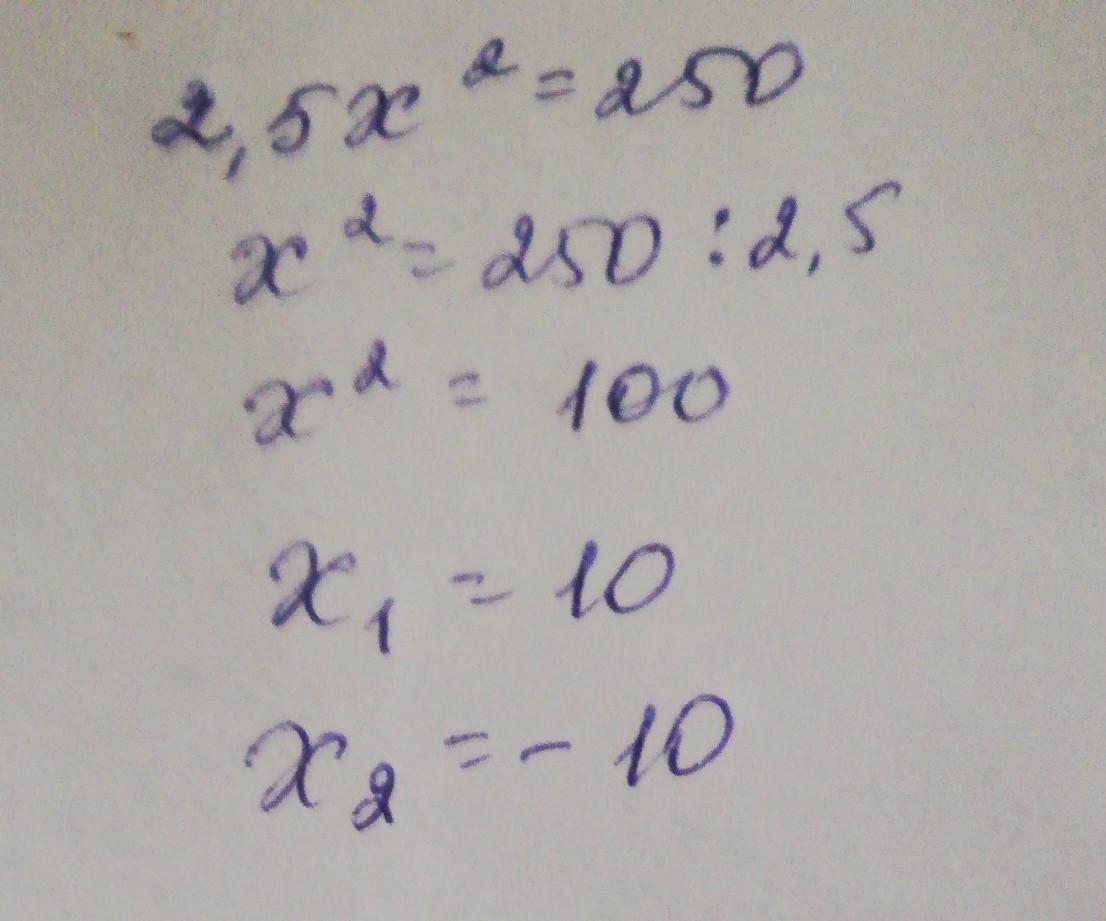 2,5x² = 250
x² = 250 : 2,5
x² = 100
x₁ = 10
x₂ = - 10